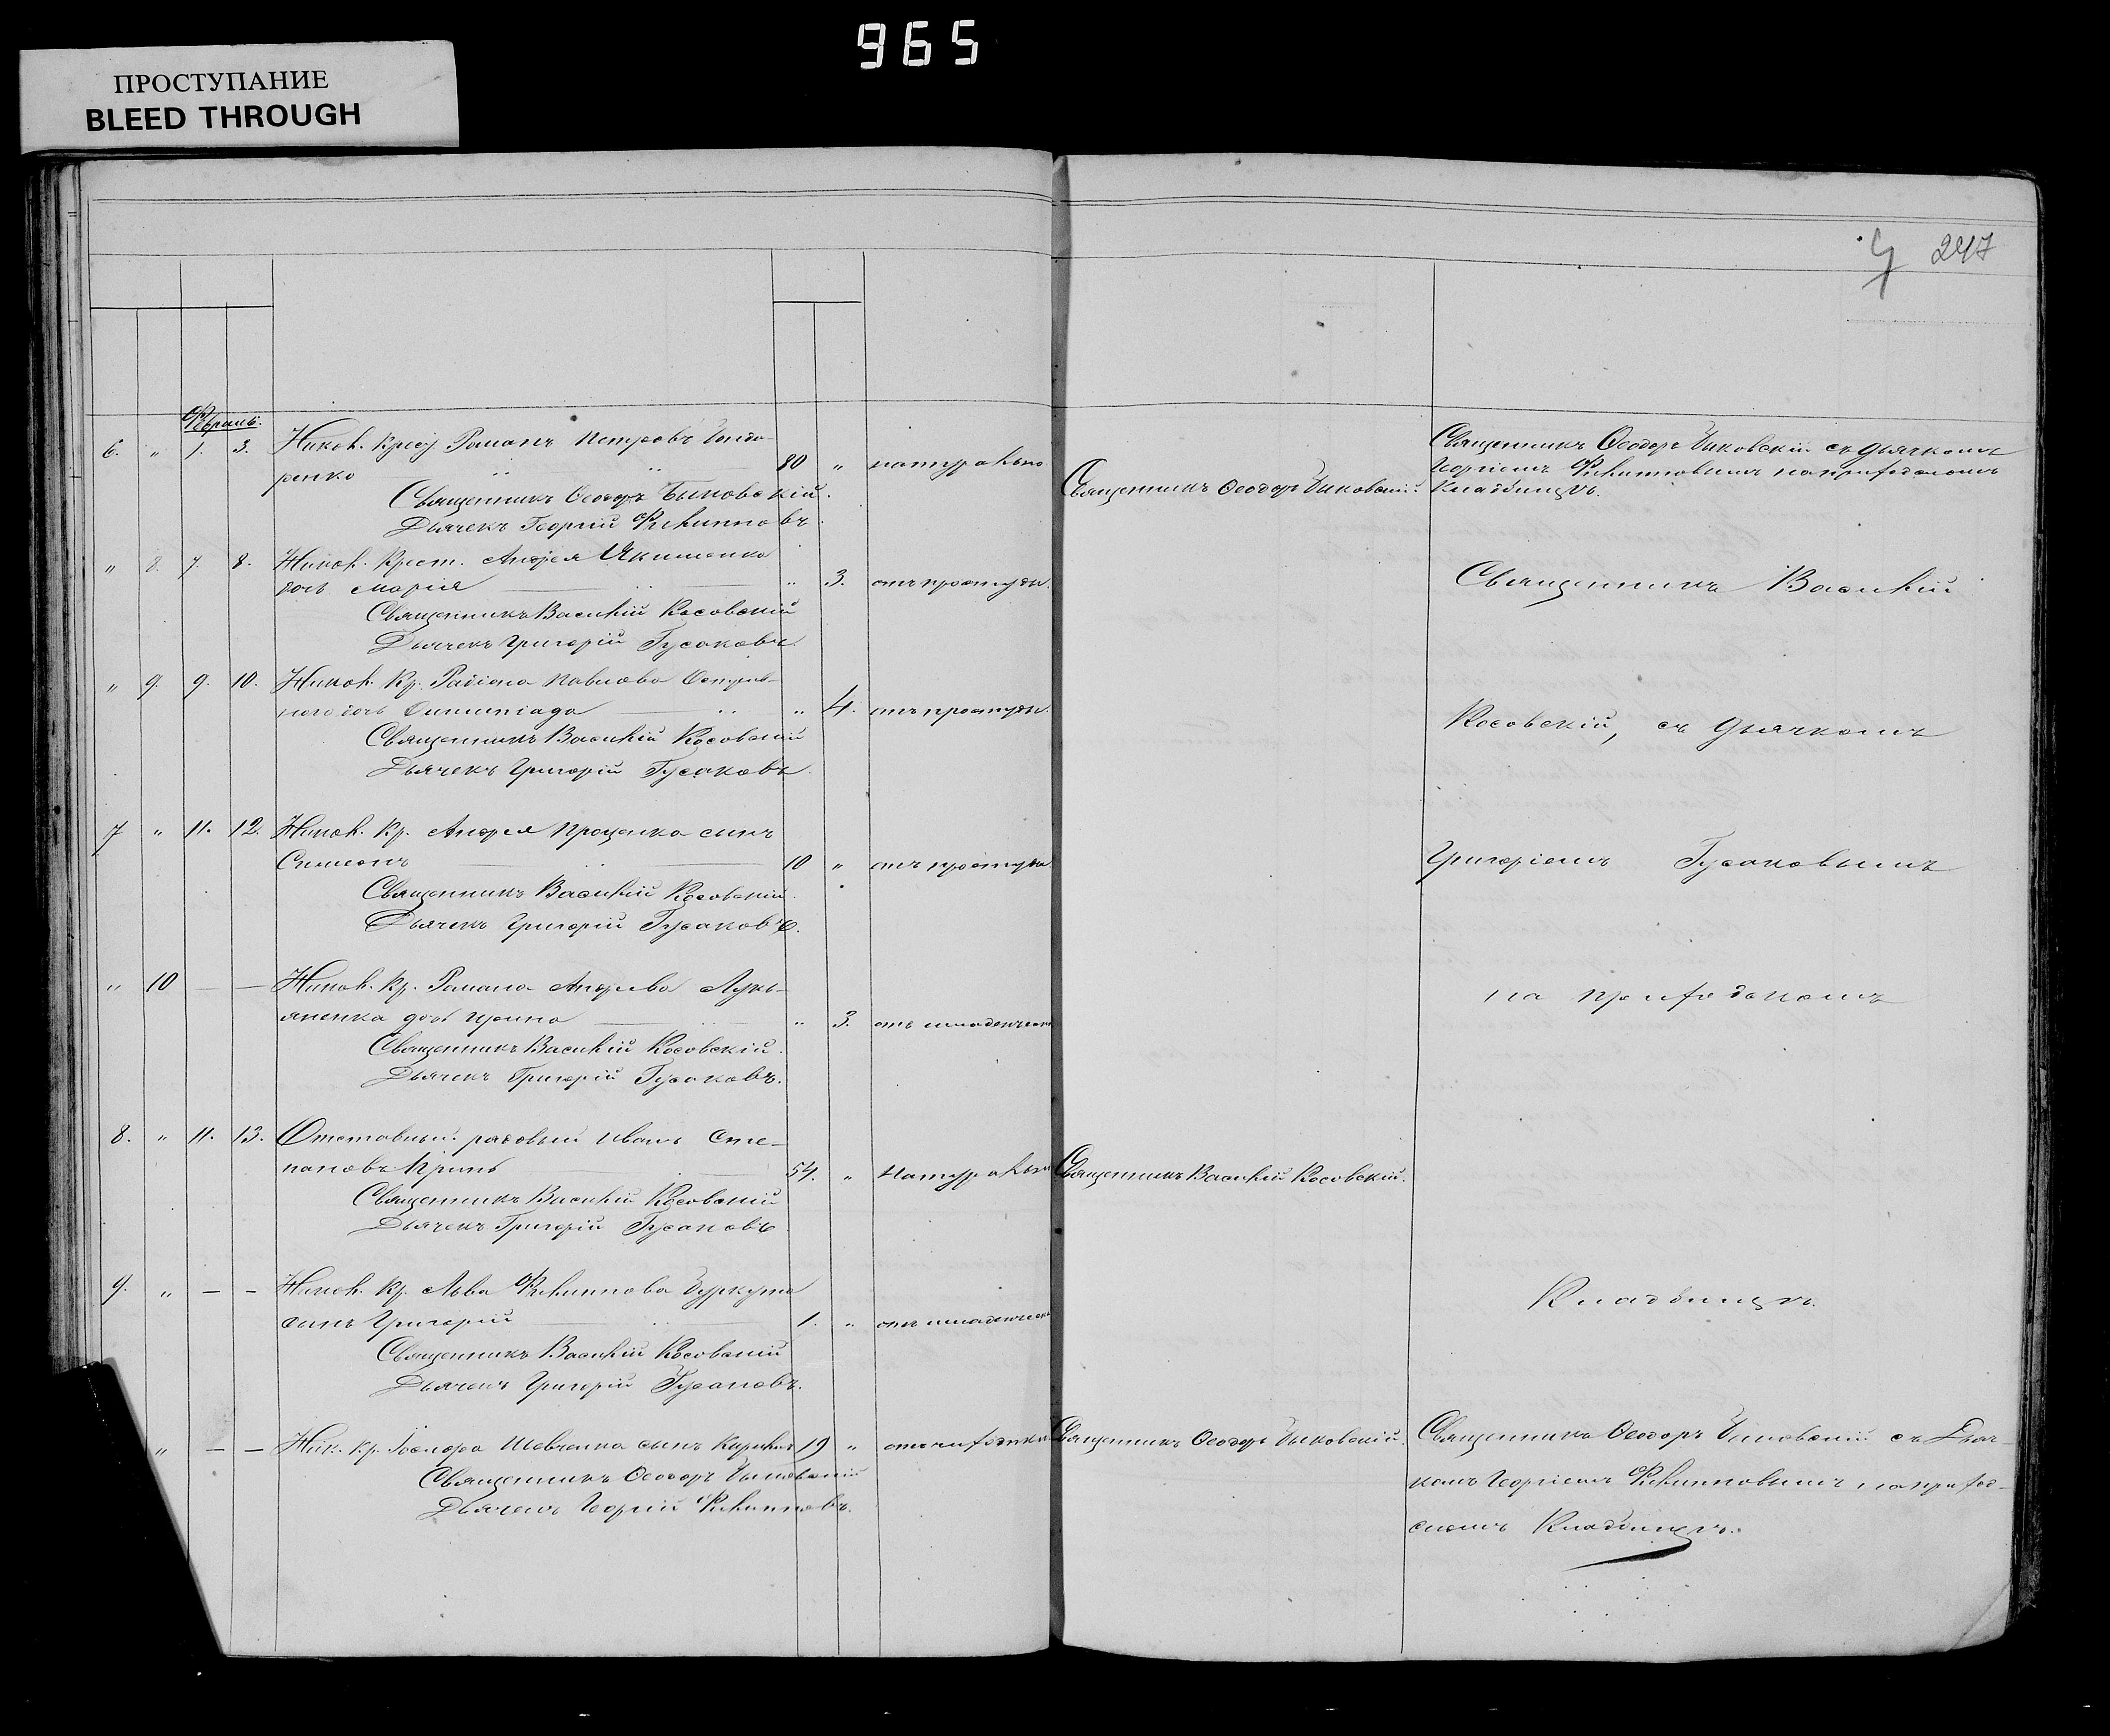 965
ПРОСТУПАНИЕ
BLEED THROUGH
247
Февраль.
6. " 1. 3. Никол. Крест Романъ Петровъ Бонда-
ренко 80 " натурально
Священникъ Ѳеодоръ Быковскій.
Дьячекъ Георгій Филипповъ.
Священникъ Ѳеодоръ Быковскій.
Священникъ Ѳеодоръ Быковскій съ дьячкомъ
Георгіемъ Филипповымъ на приходскомъ
Кладбищѣ.
" 8. 7. 8. Никол. Крест. Андрея Якименка
дочь Марія " 3. отъ простуды.
Священникъ Василій Косовскій
Дьячекъ Григорій Гусаковъ.
Священникъ Василій
" 9. 9. 10. Никол. Кр. Павлова
дочь Олимпіада " 4. отъ простуды.
Священникъ Василій Косовскій
Дьячекъ Григорій Гусаковъ.
Косовскій, съ дьячкомъ
7 " 11. 12. Никол. Кр. Андрея Проценка сынъ
Симеонъ 10 " отъ простуды
Священникъ Василій Косовскій.
Дьячекъ Григорій Гусаковъ.
Григоріемъ Гусаковымъ
" 10 — — Никол. Кр. Романа Андреева Лукь-
яненка дочь Ирина " 3. отъ младенческ
Священникъ Василій Косовскій.
Дьячекъ Григорій Гусаковъ.
на приходскомъ
8. " 11. 13. Отставный рядовый Иванъ Сте-
пановъ 54. " Натурально
Священникъ Василій Косовскій.
Священникъ Василій Косовскій
Дьячекъ Григорій Гусаковъ.
9. " — — Никол. Кр. Льва Филиппова
сынъ Григорій 1. " отъ младенческ
Кладбищѣ.
Священникъ Василій Косовскій
Дьячекъ Григорій Гусаковъ.
" — — Ник. Кр. Шевченка сынъ Кириллъ 19 "
Священникъ Ѳеодоръ Быковскій
Дьячекъ Георгій Филипповъ.
Священникъ Ѳеодоръ Быковскій.
Священникъ Ѳеодоръ Быковскій съ Дьяч-
комъ Георгіемъ Филипповымъ на приход-
скомъ Кладбищѣ.